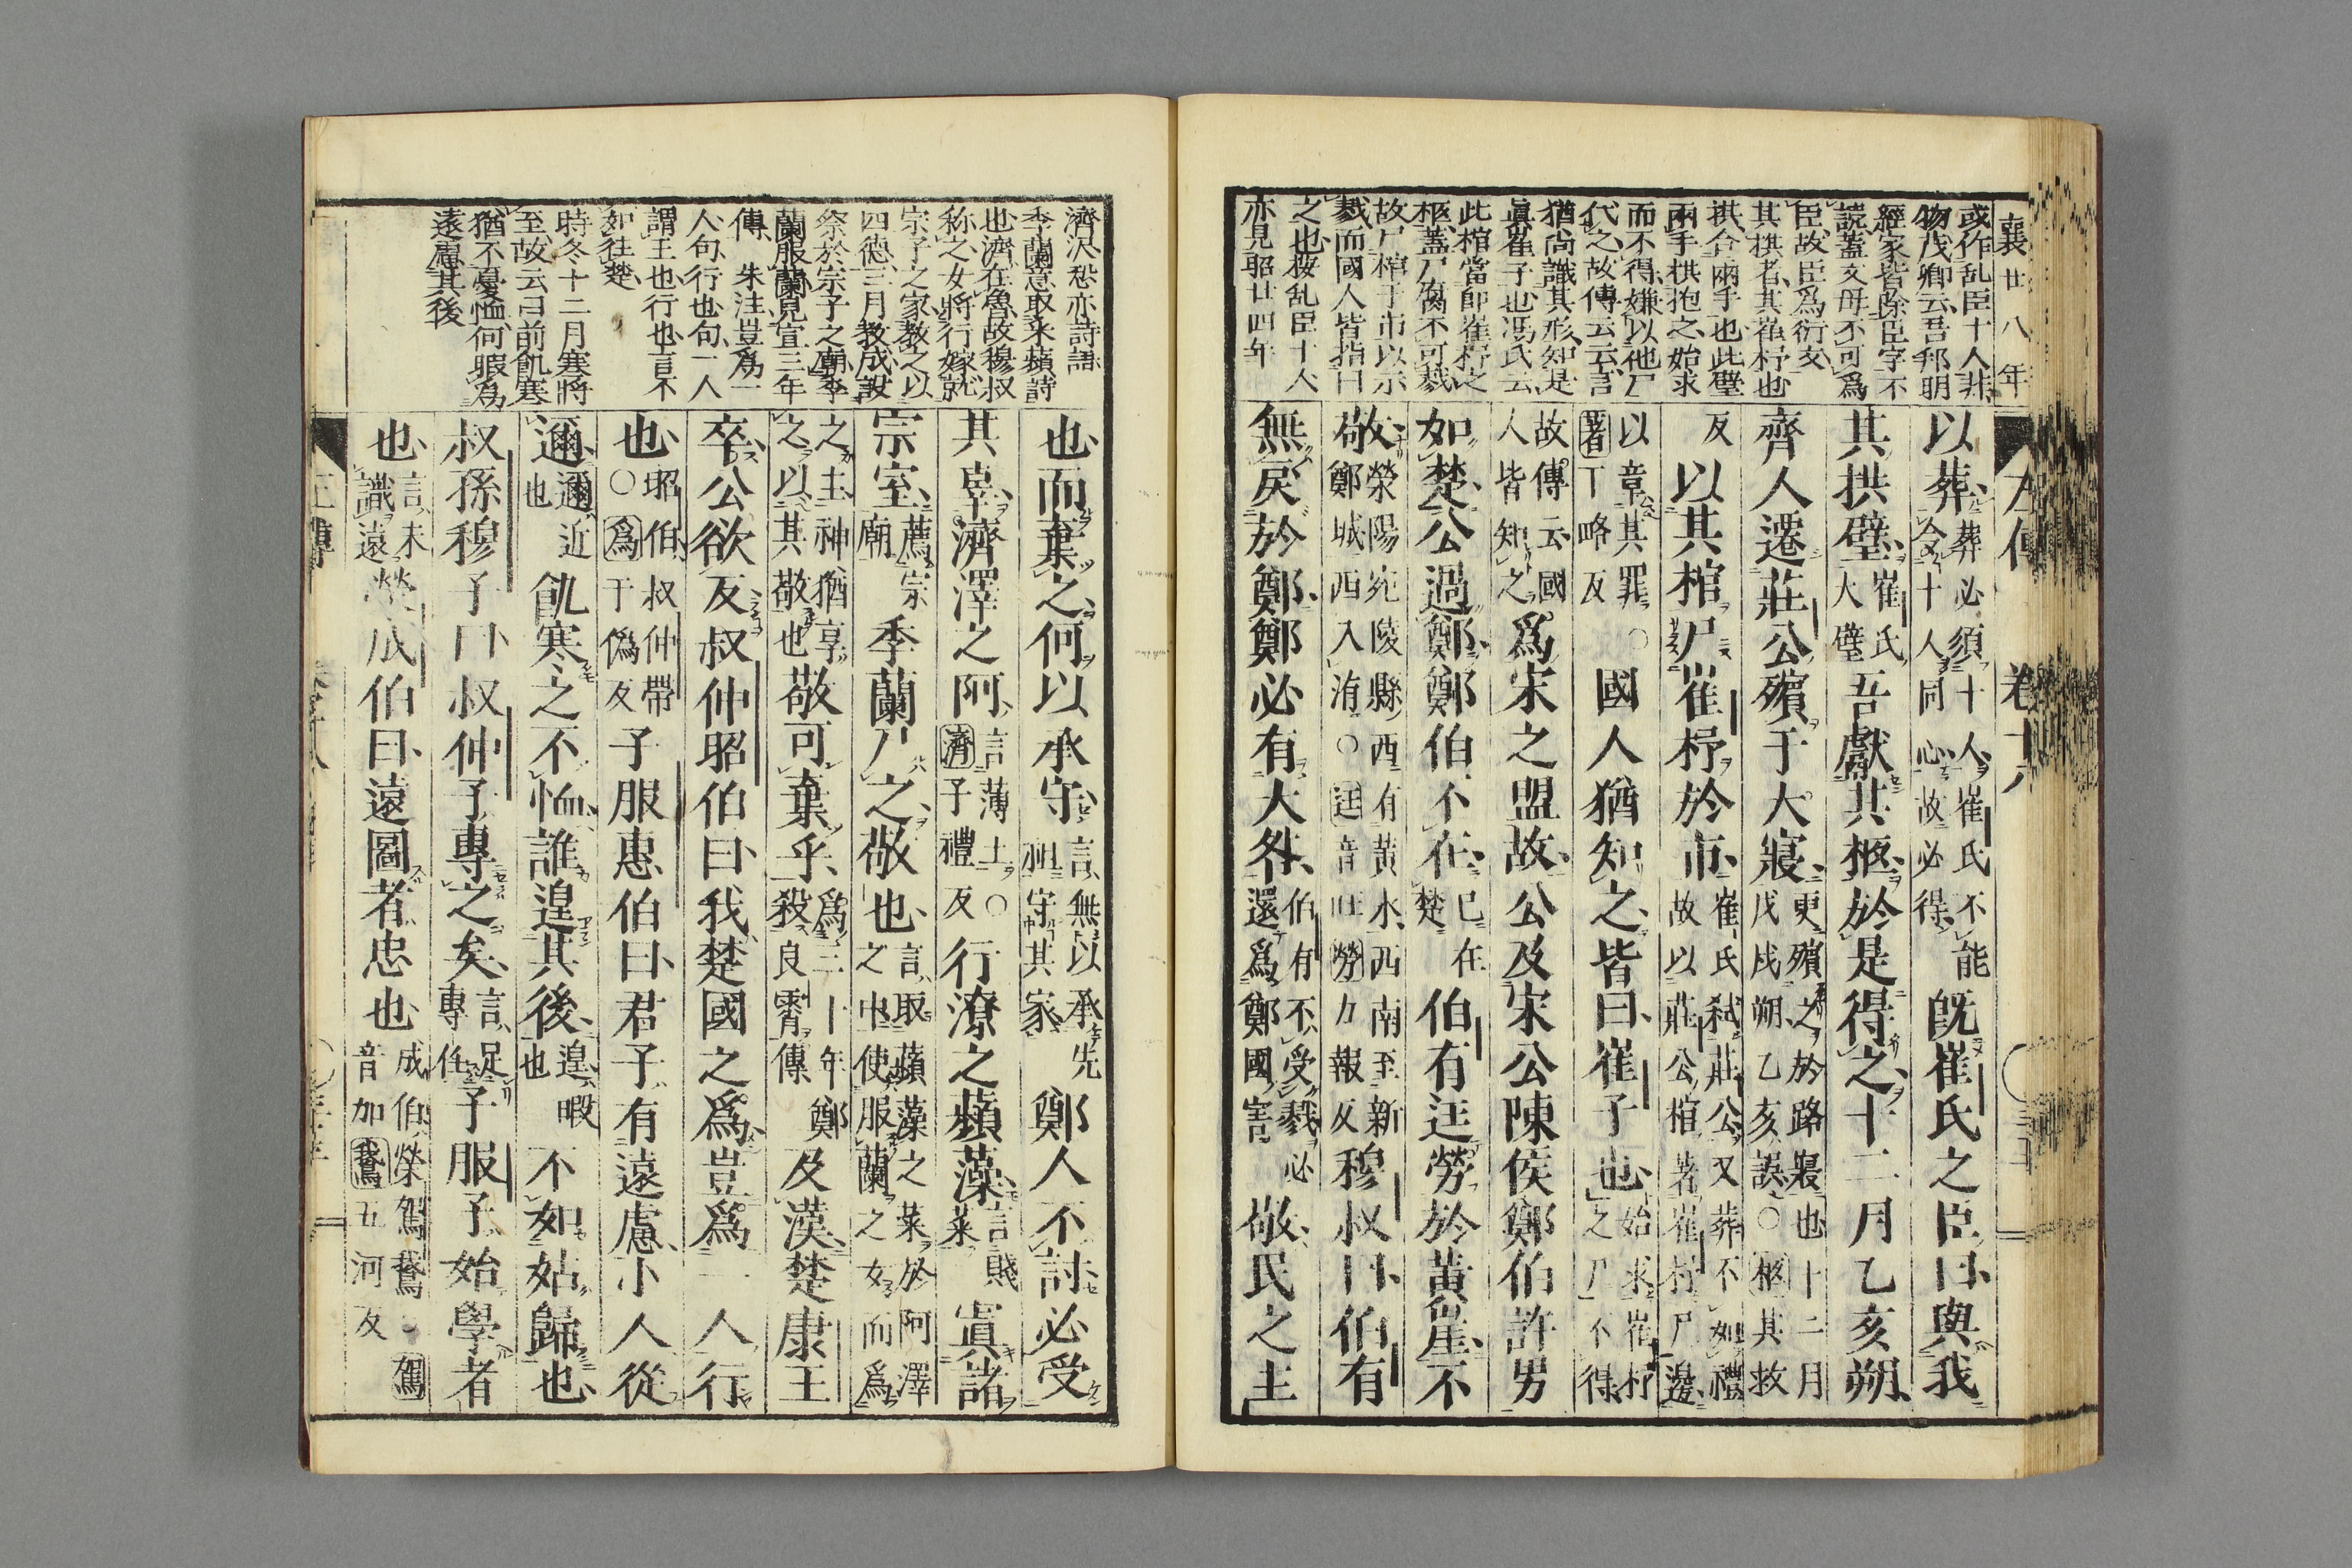 襄廿八年
左傳 卷十八
或作乱臣十人非
物茂卿云吾邦明
經家皆除臣字不
説蓋文毋不可爲
臣故臣爲衍文
其拱者其崔杼也
拱合兩手也此璧
兩手拱抱之始求
而不得嫌以他尸
代之故傳云云言
猶尚識其形知是
眞崔子也馮氏云
此棺當即崔杼之
柩蓋尸腐不可戮
故尸棺于市以示
戮而國人皆指曰
之也按乱臣十人
亦見昭廿四年
以葬葬必須十人崔氏不能令十人同心故必得既崔氏之臣曰與我
其拱璧崔氏大璧吾獻其柩於是得之十二月乙亥朔
齊人遷莊公殯于大寢更殯之於路寢也十二月戊戌朔乙亥誤○柩其救
反以其棺尸崔杼於市崔氏弑莊公又葬不如禮故以莊公棺著崔杼尸邊
以章其罪○著丁略反國人猶知之皆曰崔子也始求崔杼之尸不得
故傳云國人皆知之爲宋之盟故公及宋公陳侯鄭伯許男
如楚公過鄭鄭伯不在已在楚伯有廷勞於黃崖不
敬滎陽宛陵縣西有黃水西南至新鄭城西入洧○廷音旺勞力報反穆叔曰伯有
無戾於鄭鄭必有大咎伯有不受戮必還爲鄭國害敬民之主
濟沢恐亦詩語
季蘭意取采蘋詩
也濟在魯故穆叔
称之女將行嫁就
宗子之家教之以
四德三月教成設
祭於宗子之廟季
蘭服蘭見宣三年
傳 朱注豈爲一
人句行也句一人
謂王也行也言不
如往楚
時冬十二月寒將
至故云曰前飢寒
猶不憂恤何暇爲
遠慮其後
也而棄之何以承守言無以承先祖守其家鄭人不討必受
其辜濟澤之阿言薄土○濟子禮反行潦之蘋藻言賤菜寘諸
宗室薦宗廟季蘭尸之敬也言取蘋藻之菜於阿澤之中使服蘭之女而爲
之主神猶享之以其敬也敬可棄乎爲三十年鄭殺良霄傳及漢楚康王
卒公欲反叔仲昭伯曰我楚國之爲豈爲一人行
也昭伯叔仲帶○爲于僞反子服惠伯曰君子有遠慮小人從
邇邇近也飢寒之不恤誰遑其後遑暇也不如姑歸也
叔孫穆子曰叔仲子專之矣言足專任子服子始學者
也言未識遠榮成伯曰遠圖者忠也成伯榮駕鵞○駕音加鵞五河反